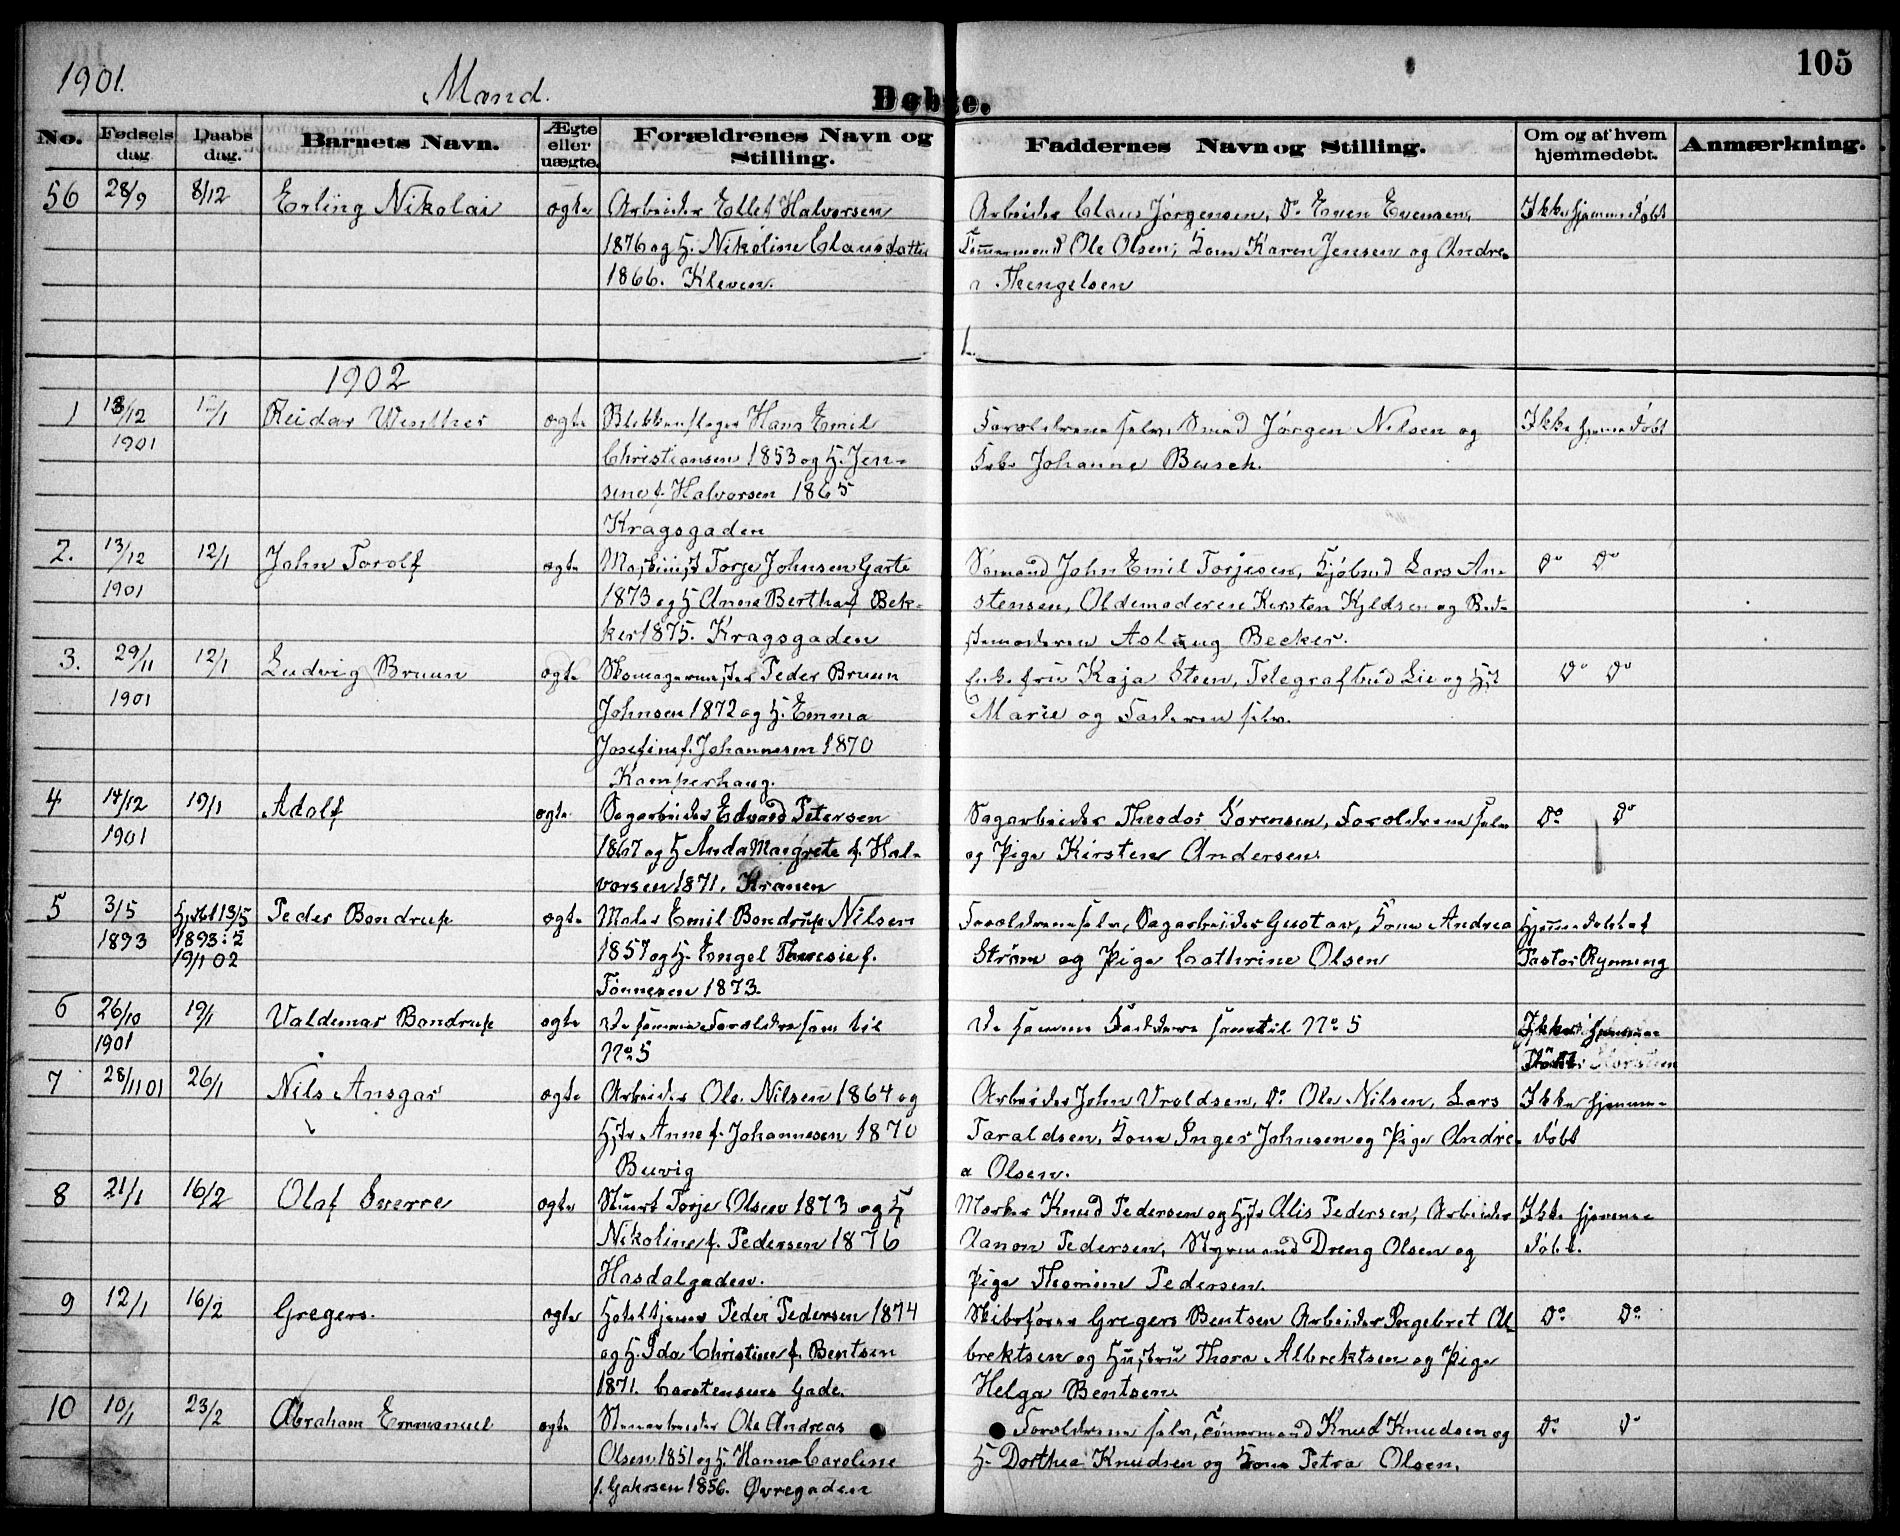 1901. Mænd. Døbte. 105
No. Fødsels dag. Daabs dag. Barnets Navn. Ægte eller uægte. Forældrenes Navn og Stilling. Faddernes Navn og Stilling. Om og af hvem hjemmedøbt. Anmærkning.
56 28/9 8/12 Erling Nikolai ægte Arbeider Ellef Halvorsen Arbeider Claus Jørgensen, Do Even Evensen, Ikke hjemmedøbt
1876 og H. Nikoline Clausdatter Tømmermand Ole Olsen; Kone Karen Jensen og Andre-
1866. Kleven. a Thengelsen
1902
1 18/12 12/1 Reidar Winther ægte Blikkenslager Hans Emil Forældrene selv, Smed Jørgen Nilsen og Ikke hjemmedøbt
1901 Christiansen 1853 og H. Jen- Frk. Johanne Busch.
sine f. Halvorsen 1865
Kragsgaden
2. 13/12 12/1 John Torolf ægte Maskinist Torje Johnsen Garte Sømand John Emil Torjesen, Do Do
1901 1873 og H Anna Bertha f. Bek- stensen, Oldemoderen Kirsten Kjeldsen og Bed-
ker 1875. Kragsgaden stemoderen Aslaug Becker.
3. 29/11 12/1 Ludvig Bruun ægte Skomagermester Peder Bruun Kaja Steen, Telegrafbud Lie og Do Do
1901 Johnsen 1872 og H. Emma Marie og Faderen selv.
Josefine f. Johannesen 1870
Kamperhaug.
4 14/12 19/1 Adolf ægte Sagarbeider Edvard Petersen Sagarbeider Theodor Sørensen, Forældrene selv Do Do
1901 1867 og H Anda Margrete f. Hal- og Pige Kirsten Andersen
vorsen 1871. Kranen
5 3/5 Hjdbt 13/5 Peder Bondrup ægte Maler Emil Bondrup Nilsen Forældrene selv, Sagarbeider Gustav, Kone Andrea Hjemmedøbt af
1893 1893: 2 1857 og H. Engel Theresie f. Strøm og Pige Cathrine Olsen Pastor Rynning
19/1 02 Tønnesen 1873.
6 26/10 19/1 Valdemar Bondrup ægte De samme Forældre som til De samme Faddere som til No 5 Ikke hjemme-
1901 No 5
7 28/11 01 26/1 Nils Ansgar ægte Arbeider Ole Nilsen 1864 og Arbeider John Vroldsen, Do Ole Nilsen, Lars Ikke hjemme-
Hstr Anne f. Johannesen 1870 Taraldsen, Kone Inger Johnsen og Pige Andre- døbt
Buvig a Olsen.
8 21/1 16/2 Olaf Sverre ægte Stuert Torje Olsen 1873 og H Knud Pedersen og Hstr Alis Pedersen, Arbeider Ikke hjemme-
Nikoline f. Pedersen 1876 Aanon Pedersen, Styrmand Dreng Olsen og døbt.
Hasdalgaden. Pige Thomine Pedersen.
9 12/1 16/2 Gregers. ægte Hoteltjener Peder Pedersen 1874 Skibsfører Gregers Bentsen Arbeider Ingebret Al- Do Do
og H. Ida Christine f. Bentsen brektsen og Hustru Thora Albrektsen og Pige
1871. Carstensens Gade. Helga Bentsen.
10 10/1 23/2 Abraham Emmanuel ægte Stenarbeider Ole Andreas Forældrene selv, Tømmermand Knud Knudsen og Do Do
Olsen 1851 og H. Hanna Caroline H. Dorthea Knudsen og Kone Petra Olsen.
f. 1856. Øvregaden